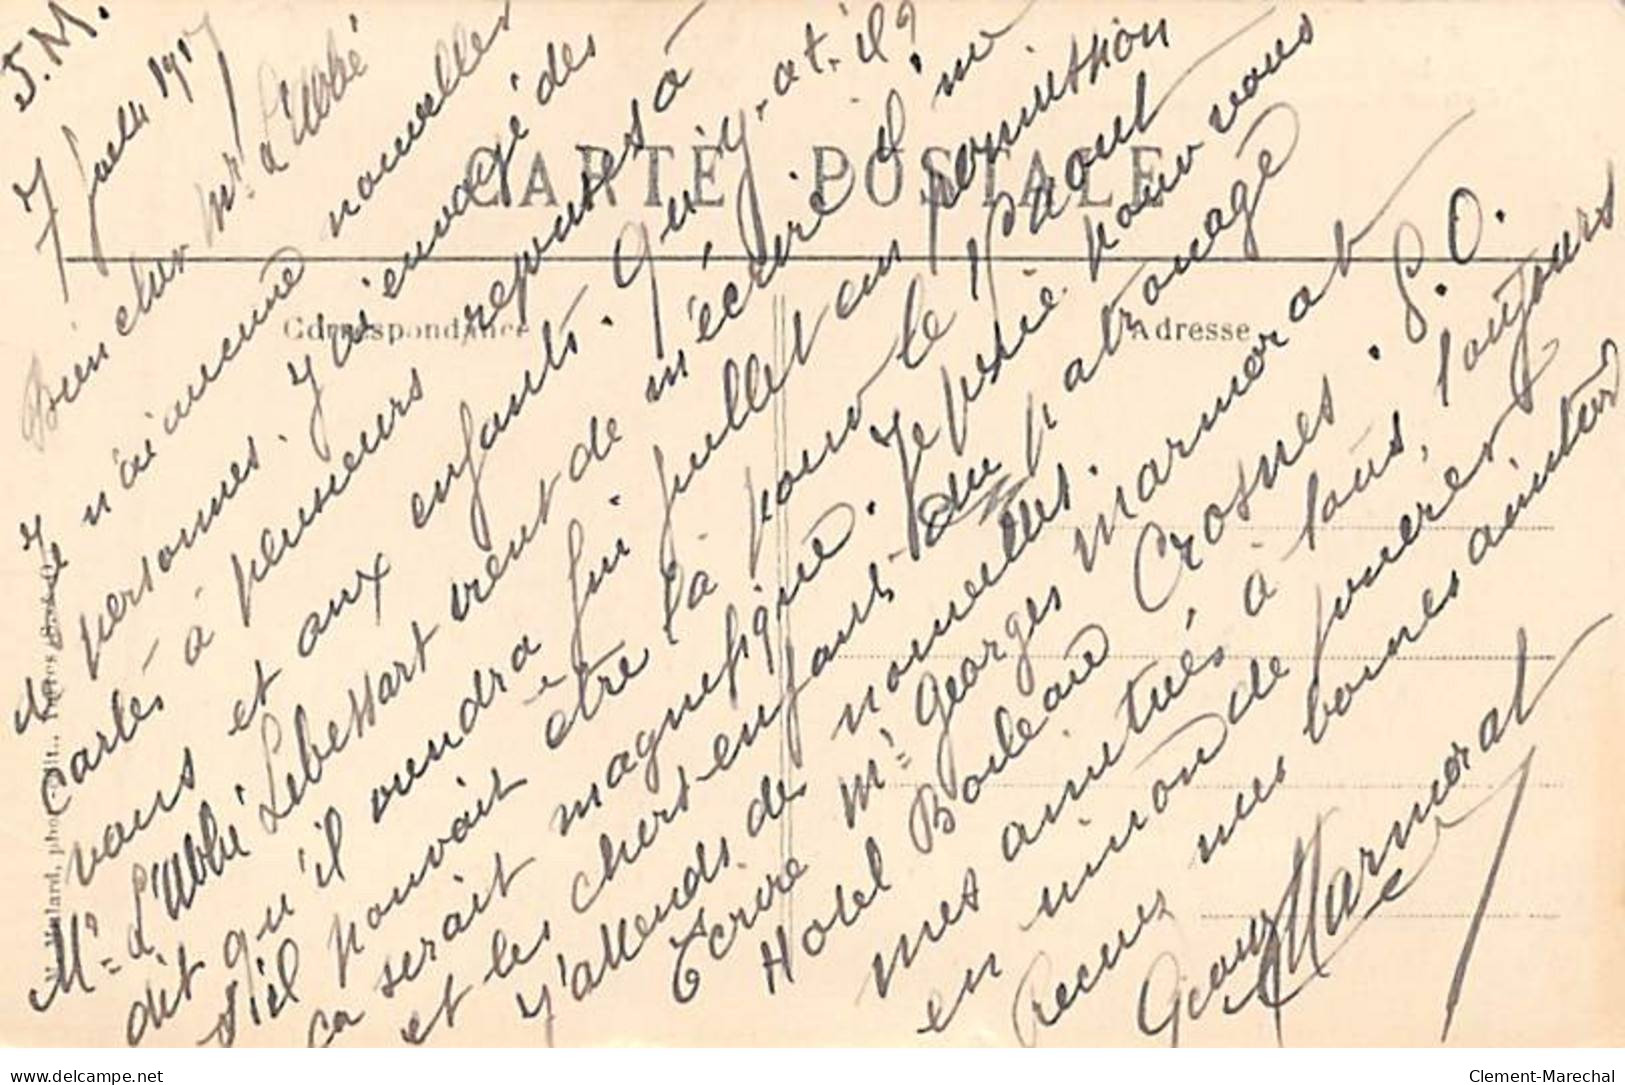 J.M.
7 Juill 1917
Bien cher Mr. L'abbé
Je n'ai aucune nouvelles
de personnes. J'ai envoyé des
cartes à plusieurs réponses à
vous et aux enfants. Qu'y-a-t-il?
Mr. L'abbé Lebessart vient de m'écrire il me
dit qu'il viendra fin juillet en permission
s'il pouvait être là pour le 15 aout
ça serait magnifique. Je prie pour vous
et les chers enfants du patronage
j'attends des nouvelles.
Ecrire Mr. Georges Marmorat
Hotel Boileau Crosnes. S.O.
mes amitiés à tous, toujours
en union de prieres
Recevez mes bonnes amitiés
Georges Marmorat
CARTE POSTALE
Correspondance
Adresse
Malard, phot.-édit.,
Clement-Marechal
delcampe.net